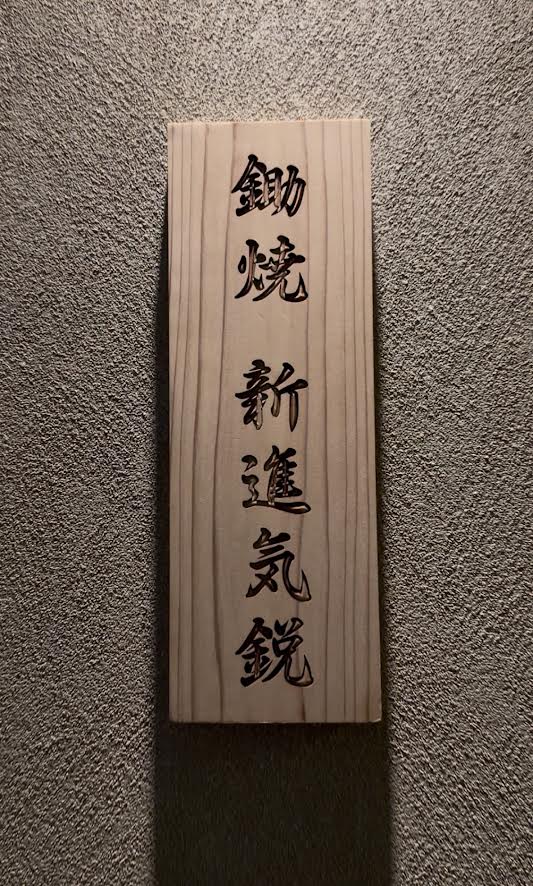 鋤焼 新進気鋭